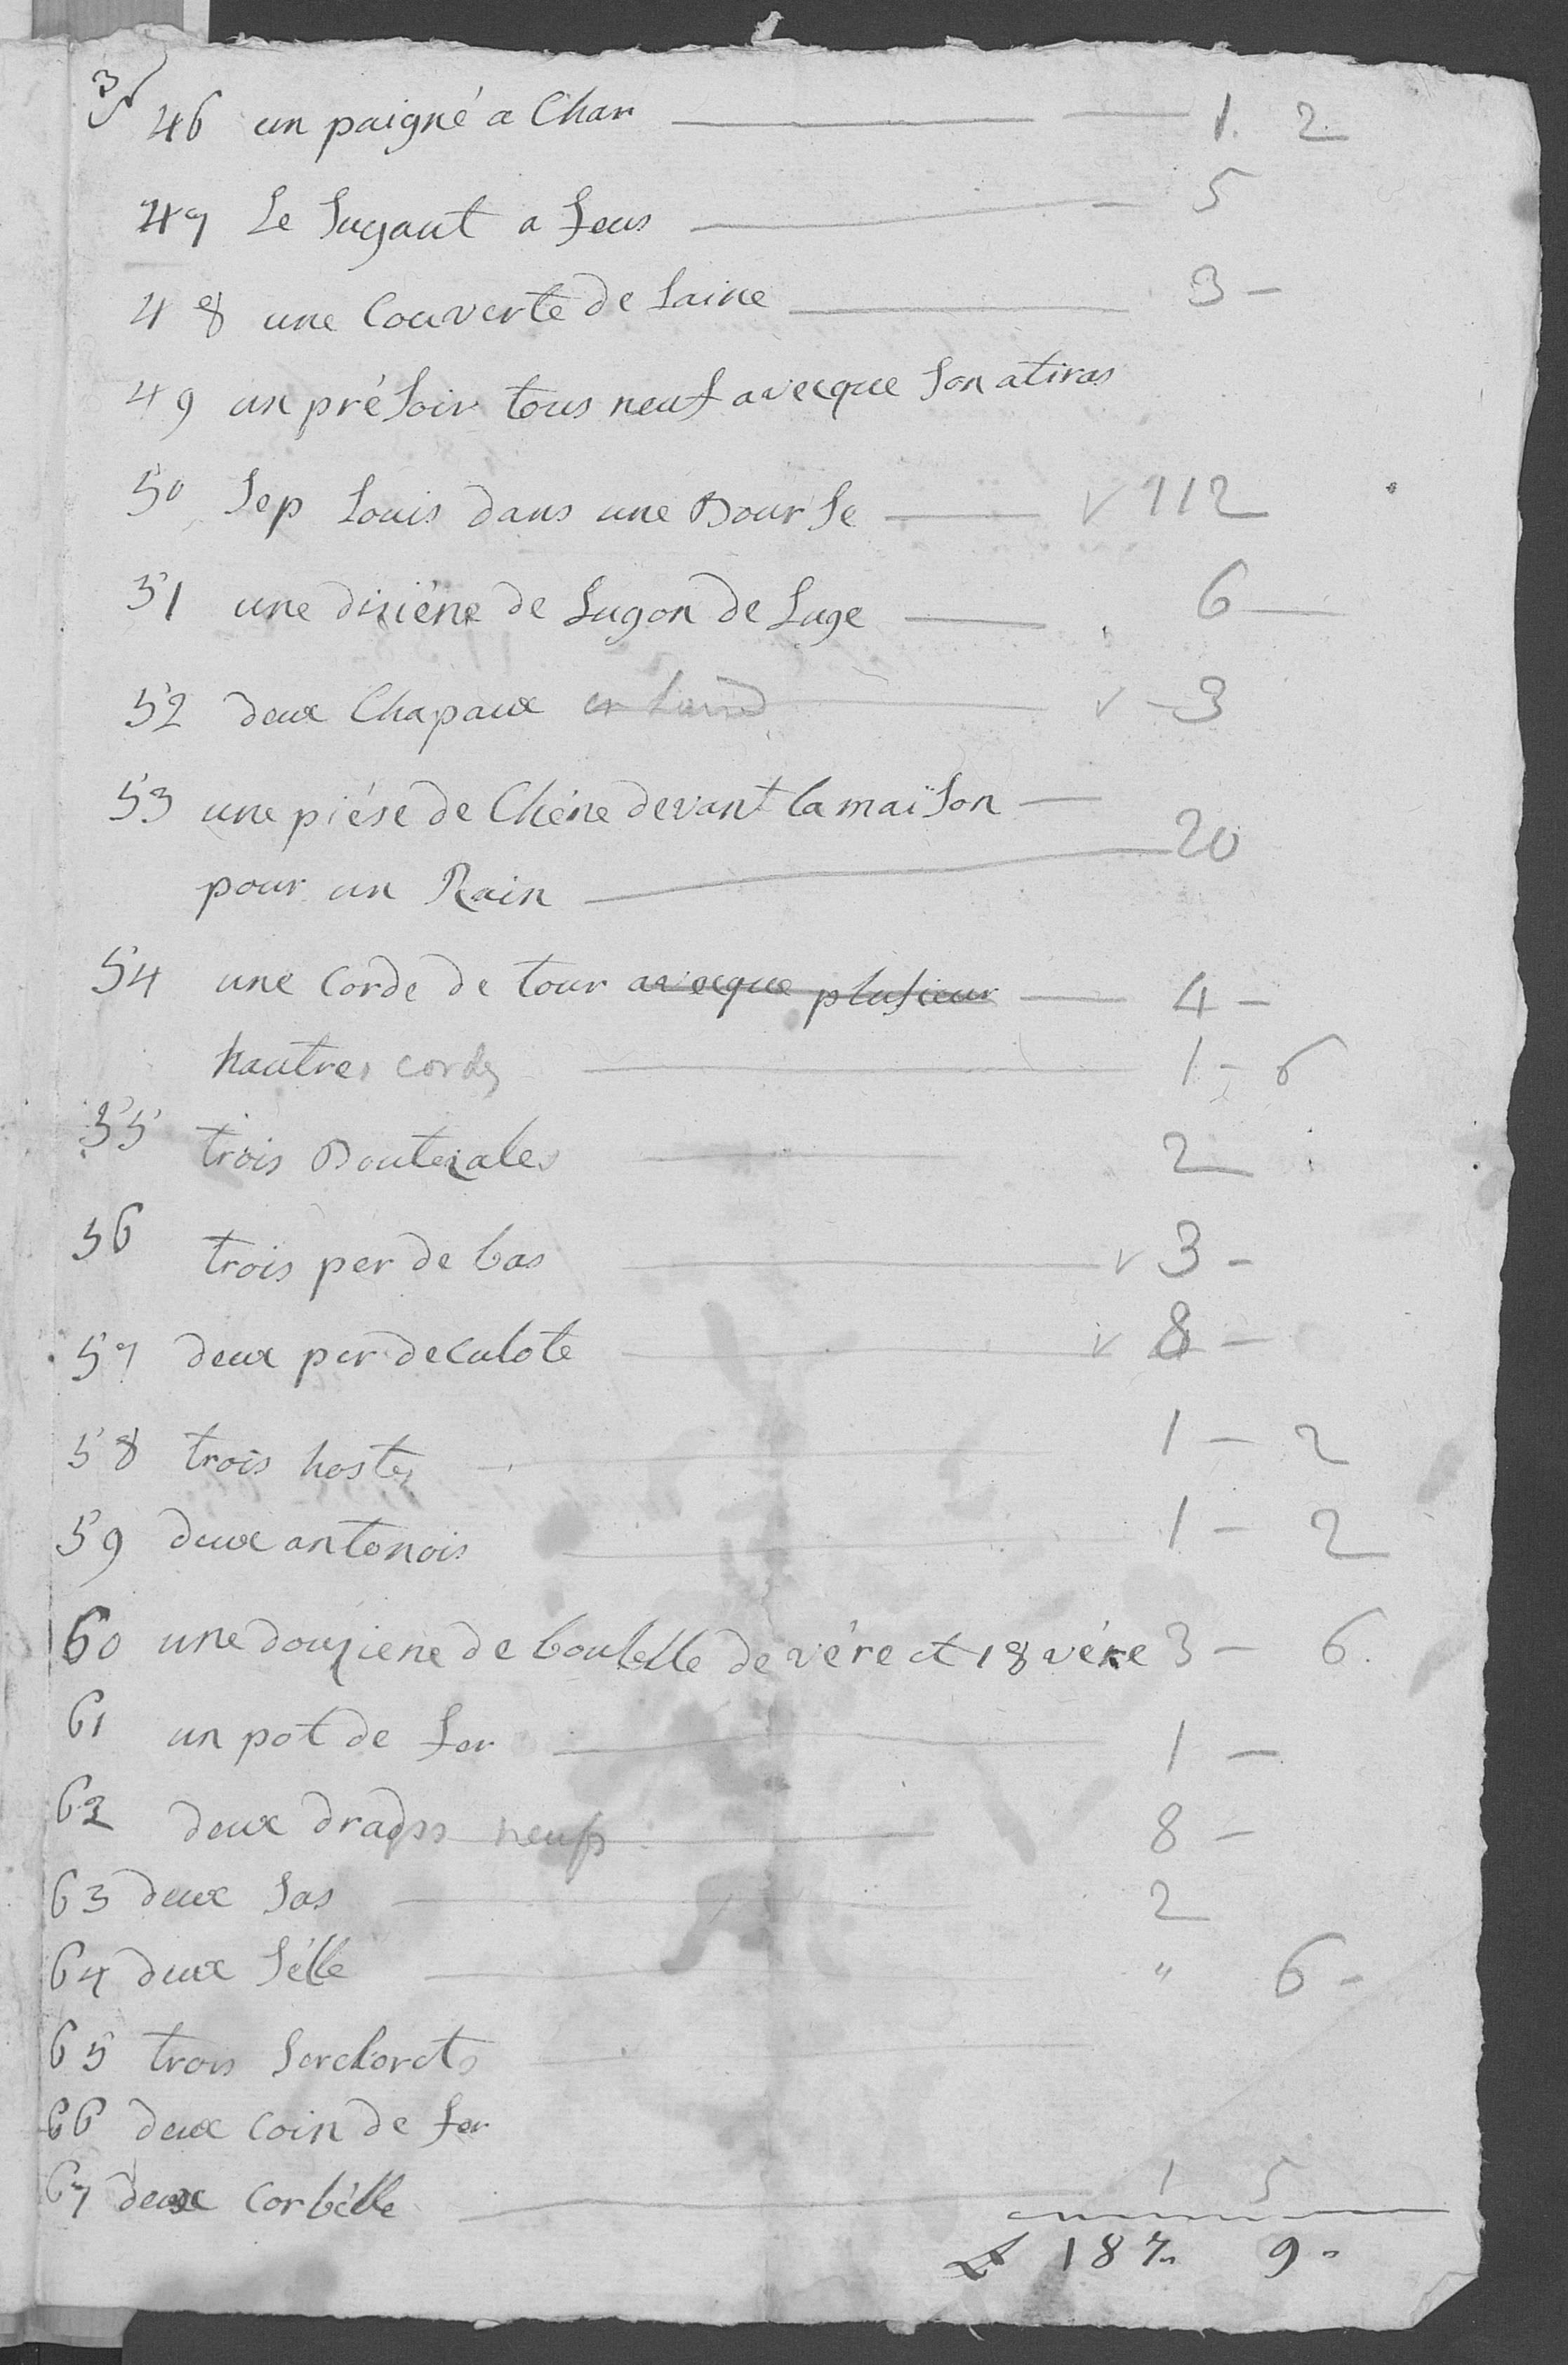 46 un paigné a Char 1. 2
47 Le Sugaut a feus 5
48 une Couverte de Laine 3 -
49 un présoir tous neuf avecque son atiras
50 Sep Louis dans une Bourse v 112
51 une diziéne de Sugon de Suge 6
52 deux Chapaux v 3
53 une piése de Chéne devant la maison
pour un Rain 20
54 une Corde de tour avecque plusieur 4 -
hautres cordes 1 - 6
55 trois Boutezales 2
56 trois per de bas v 3 -
57 deux per de culote v 8 -
58 trois hostes 1 - 2
59 deux antonois 1 - 2
60 une douziene de boutelle de vére et 18 vére 3 - 6.
61 un pot de fer 1 -
62 deux draps neufs 8 -
63 deux Sas 2
64 deux Sélle " 6 -
65 trois Serclorets
66 deux Coin de fer
67 deux Corbélle 1 5
187. 9 -